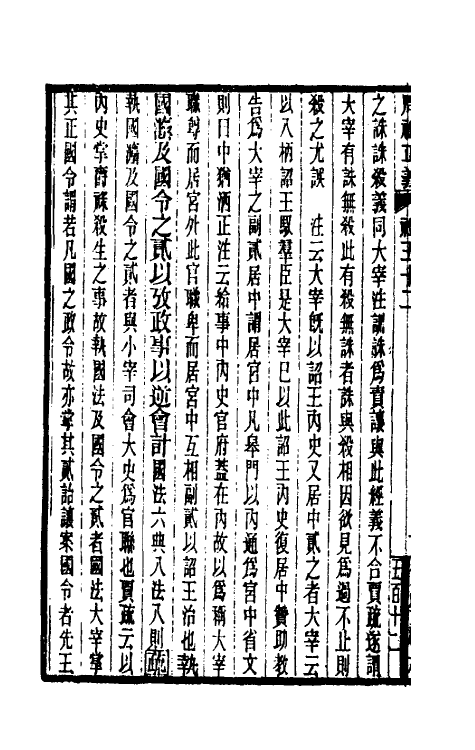 周禮正義 卷五十二 五百十二
之誅誅殺義同大宰注訓誅爲責讓與此經義不合賈疏遂謂
大宰有誅無殺此有殺無誅者誅與殺相因欲見爲過不止則
殺之尤誤　注云大宰旣以詔王內史又居中貳之者大宰云
以八柄詔王馭羣臣是大宰已以此詔王內史復居中贊助教
告爲大宰之副貳居中謂居宮中凡皋門以內通爲宮中省文
則曰中猶酒正注云給事中內史官府蓋在內故以爲稱大宰
職尊而居宮外此官職卑而居宮中互相副貳以詔王治也執
國灋及國令之貳以攷政事以逆會計國法六典八法八則疏
執國灋及國令之貳者與小宰司會大史爲官聯也賈疏云以
內史掌爵祿殺生之事故執國法及國令之貳者國法大宰掌
其正國令謂若凡國之政令故亦掌其貳詒讓案國令者先王